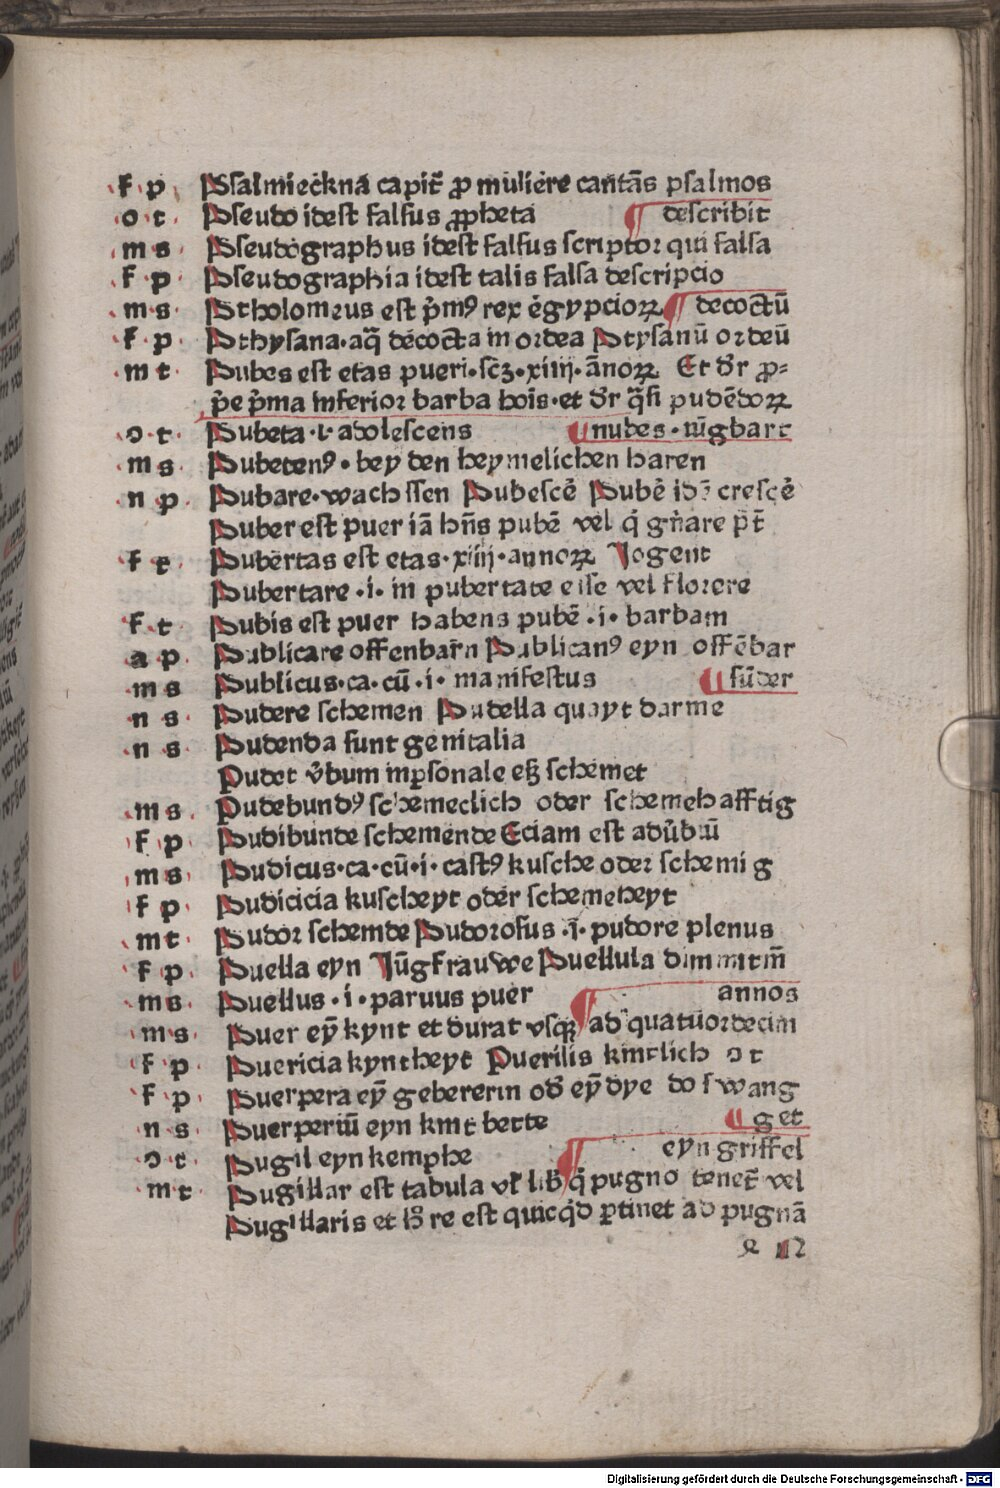 f p Psalmieckna capit̃ ꝓ muliere cantãs psalmos
o t Pseudo idest falsus ꝓpheta ¶ describit
m s Pseudographus idest falsus scriptor qui falsa
f p Pseudographia idest talis falsa descripcio
m s Ptholomeus est p̃mꝰ rex egypcioꝝ ¶ decoctũ
f p Pthysana·aq̃ decocta in ordea Ptysanũ ordeũ
m t Pubes est etas pueri·scꝫ·xiiij·ãnoꝝ Et dr̃ ꝓ-
p̃e p̃ma inferior barba hoĩs·et dr̃ q̃si pudẽdoꝝ
o t Pubeta·i·adolescens ¶ nubes·iũgbart
m s Pubetenꝰ·bey den heymelichen haren
n p Pubare·wachssen Pubescẽ Pubẽ idꝫ crescẽ
Puber est puer iã hñs pubẽ vel q̇ gñare põt
f t Pubertas est etas·xiiij·annoꝝ Jogent
Pubertare·i·in pubertate esse vel florere
f t Pubis est puer habens pubẽ·i·barbam
a p Publicare offenbarñ Publicanꝰ eyn offẽbar
m s Publicus·ca·cũ·i·manifestus ¶ sũder
n s Pudere schemen Pudella quayt darme
n s Pudenda sunt genitalia
Pudet v̉bum inꝑsonale eß schemet
m s Pudebundꝰ schemeclich oder schemehafftig
f p Pudibunde schemende Eciam est adủbiũ
m s Pudicus·ca·cũ·i·castꝰ kusche oder schemig
f p Pudicicia kuscheyt oder schemeheyt
m t Pudor schemde Pudorosus·i·pudore plenus
f p Puella eyn Jũgfrauwe Puellula diminitm̃
m s Puellus·i·paruus puer ¶ annos
m s Puer eỹ kynt et durat vsqꝫ ad quatuordecim
f p Puericia kyntheyt Puerilis kintlich o t
f p Puerpera eỹ gebererin od̉ eỹ dye do swang
n s Puerperiũ eyn kint bette ¶ get
o t Pugil eyn kemphe ¶ eyn griffel
m t Pugillar est tabula vl̉ lib̉ q̇ pugno tenet̃ vel
Pugillaris et hõ re est quicq̇d ꝑtinet ad pugnã
Digitalisierung gefördert durch die Deutsche Forschungsgemeinschaft - DFG